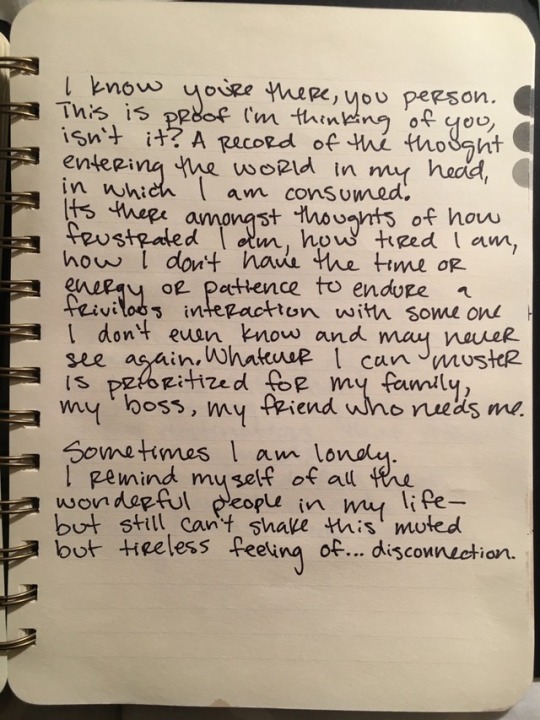 I know you're there, you person.
This is proof I'm thinking of you,
isn't it? A record of the thought
entering the world in my head,
in which I am consumed.
Its there amongst thoughts of how
frustrated I am, how tired I am,
how I don't have the time or
energy or patience to endure a
frivilous interaction with some one
I don't even know and may never
see again. Whatever I can muster
is prioritized for my family,
my boss, my friend who needs me.
Sometimes I am lonely.
I remind myself of all the
wonderful people in my life—
but still can't shake this muted
but tireless feeling of... disconnection.